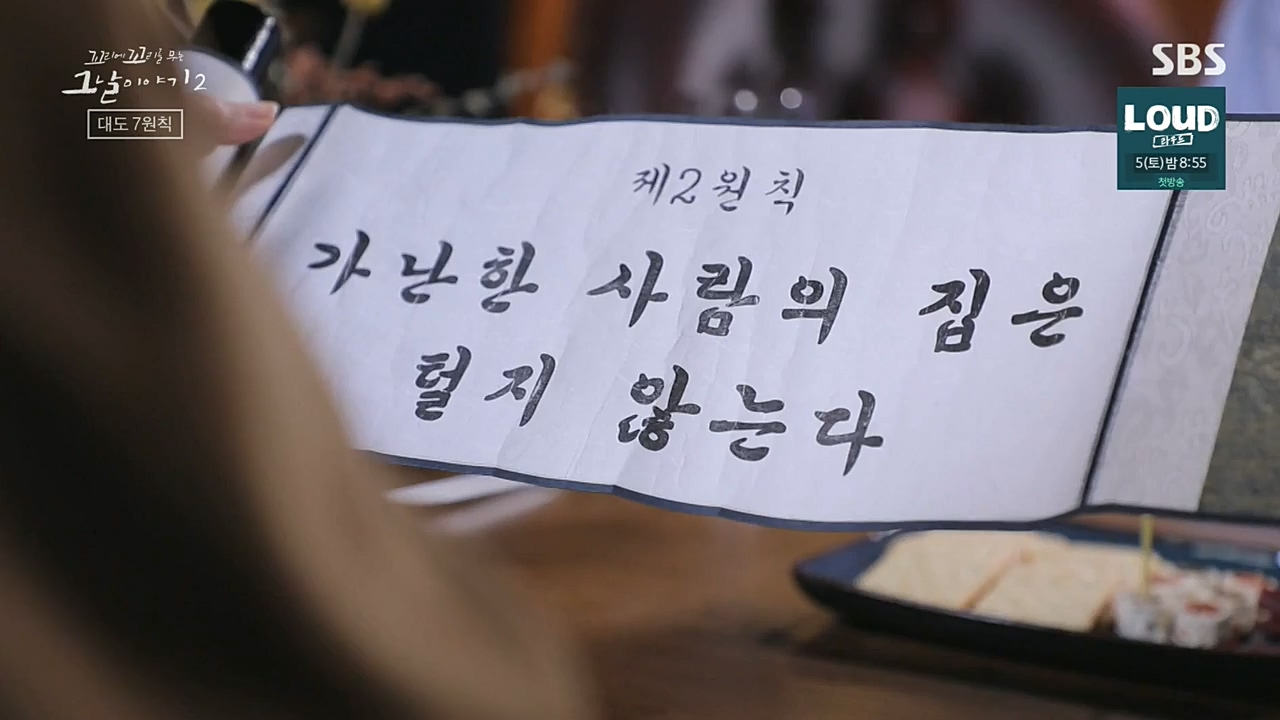 꼬리에 꼬리를 무는
그날 이야기 2
대도 7원칙
SBS
LOUD
라우드
5(토) 밤 8:55
첫방송
제2원칙
가난한 사람의 집은
털지 않는다